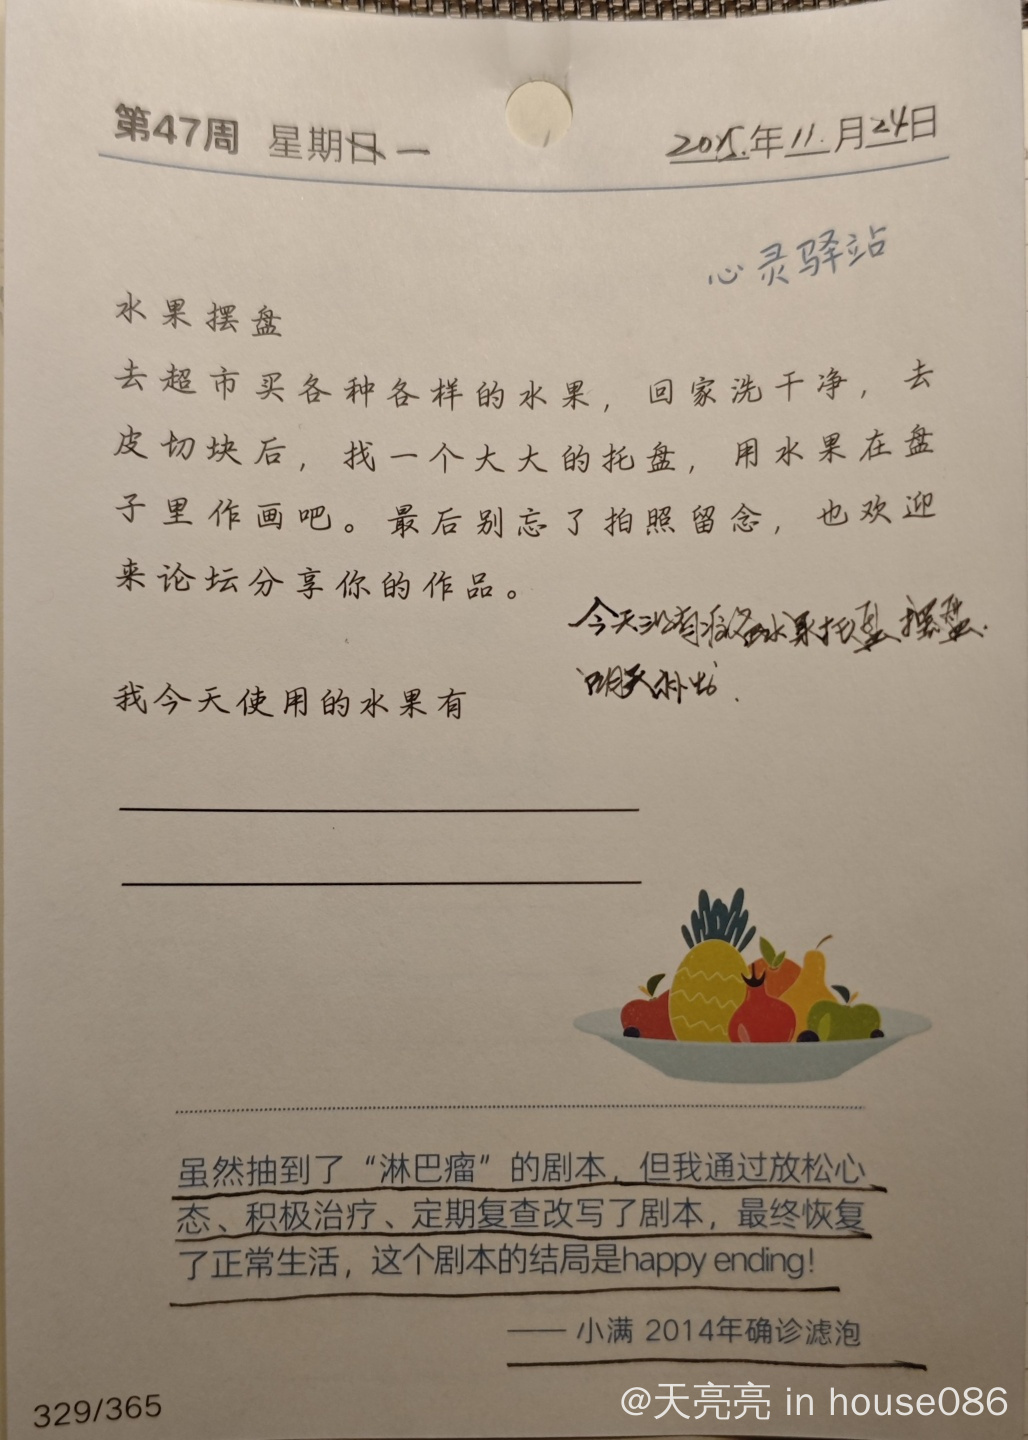 第47周 星期日 一
2025.年11.月24日
心灵驿站
水果摆盘
去超市买各种各样的水果，回家洗干净，去
皮切块后，找一个大大的托盘，用水果在盘
子里作画吧。最后别忘了拍照留念，也欢迎
来论坛分享你的作品。
今天没有准备水果托盘摆盘.
明天补齐.
我今天使用的水果有
虽然抽到了“淋巴瘤”的剧本，但我通过放松心
态、积极治疗、定期复查改写了剧本，最终恢复
了正常生活，这个剧本的结局是happy ending！
—— 小满 2014年确诊滤泡
329/365
@天亮亮 in house086